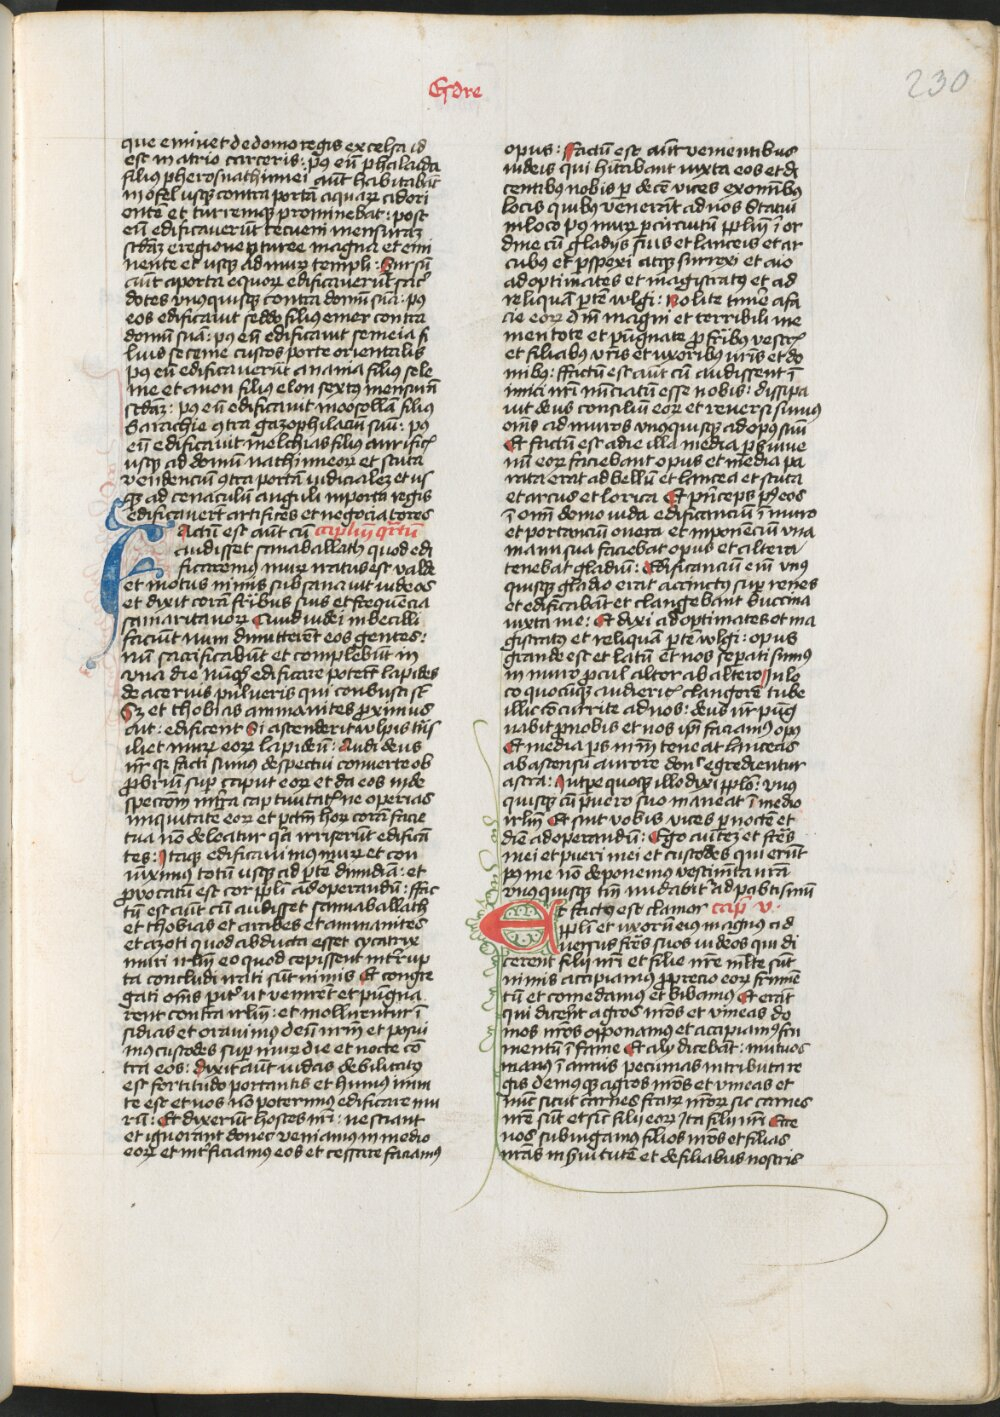 Esdre
230
que eminet de domo regis excelsa id
est in atrio carceris : p9 eū phaladia
filius pheros nathinnei aūt habitabāt
in ofel usq contra portā aquarꝫ ad ori
entē et turremq prominebat : post
eū edificaverūt tecueni mensurā
scdāꝫ e regione turre magna et emi
nente et usq ad murꝫ templi : Sursū
aūt a porta equorꝫ edificaverūt sac̄
dotes vnusquisq contra domū suā : p9
eos edificavit seddo filius emer contra
domū suā : p9 eū edificavit semeia fi
lius seceme custos porte orientalis
p9 eū edificaverūt anania filius sele
me et anon filius elon sextus mensurā
scdāꝫ : p9 eū edificavit moosollā filius
barachie 9tra gazophilaciū suū : p9
eū edificavit melchias filius aurific̄
usq ad domū nathinneorꝫ et scuta
vendenciū 9tra portā iudicialeꝫ et us
qꝫ ad cenaculū anguli in porta regis
edificaverūt artifices et negociatores
Factū est aūt cū caplm̄ qrtū
audisset sanaballath quod edi
ficaremus murꝫ iratus est valde
et motus nimis subsanavit iudeos
et dixit corā frībus suis et frequēcia
samaritanorꝫ Quid iudei imbecilli
faciūt num dimittent eos gentes :
nū sacrificabūt et complebūt in
vna die nūq edificare poterūt lapides
de acervis pulveris qui conbusti st̄
Sꝫ et thobias ammanites proximus
ait : edificent Si ascenderit vulpis trās
iliet murꝫ eorꝫ lapideū : Audi deus
nr̄ qꝫ facti sumus despectui converte ob
probriū sup caput eorꝫ et da eos in de
spectōm in tr̄a captivitatꝫ ne operias
iniquitatē eorꝫ et pctm̄ horꝫ corā facie
tua nō deleatur qꝫ irriserūt edificā
tes : Itaqꝫ edificavimus murꝫ et con
iūximus totū usqꝫ ad ptē dimidiā : et
provocatū est cor ppli ad operandū : ffac
tū est aūt cū audisset sannaballath
et thobias et arabes et ammanites
et azoti quod abducta esset cycatrix
muri irlm̄ eo quod cepissent int̄rup
ta concludi irati sūt nimis Et congre
gati oms̄ pit̄ ut venirēt et pugna
rent contra irlm̄ : et molirentur ī
sidias et oravimus deū nrm̄ et posui
mus custodes sup murꝫ die et nocte cō
tra eos : dixit aūt iudas debilitata
est fortitudo portantis et humus nimi
te est et nos nō poterimus edificare mu
rū : Et dixerūt hostes nr̄i : nesciant
et ignorant donec veniamus in medio
eorꝫ et int̄ficiamus eos et cessare faciam9
opus : factū est aūt venientibus
iudeis qui hitabant iuxta eos et di
centibus nobis p decē vices ex omnibus
locis quibus venerāt ad nos Statui
in loco p9 murꝫ p circuitū pplm̄ ī or
dine cū gladiis suis et lanceis et ar
cubus et pspexi atqꝫ surrexi et aio
ad optimates et magistratus et ad
reliquam ptē vulgi : Nolite timē a fa
cie eorꝫ dm̄ magni et terribili me
mentote et pugnate p frībus vestr̄
et filiabus vr̄is et uxoribus vr̄is et do
mibus : ffactū est aūt cū audissent ī
imici nr̄i nūciatū esse nobis : dissipa
vit deus consiliū eorꝫ et reversi sumus
oms̄ ad muros vnusquisqꝫ ad opus suū
Et factū est a die illa media ps iuve
nū eorꝫ faciebant opus et media pa
rata erat ad bellū et lancea et scuta
et arcus et lorica Et princeps p9 eos
ī omī domo iuda edificanciū ī muro
et portanciū onera et inponenciū vna
manu sua faciebat opus et altera
tenebat gladiū : Edificanciū eim̄ vnus
quisqꝫ gladio erat accinctus sup renes
et edificabāt et clangebant buccina
iuxta me : Et dixi ad optimates et ma
gistratus et reliquā ptē vulgi : opus
grande est et latū et nos sepati sumus
in muro procul alter ab altero In lo
co quocūqꝫ audieritꝫ clangorē tube
illic concurrite ad nos : deus nr̄ pug
nabit p nobis et nos ipī faciamus opus
Et media ps nrm̄ teneat lanceas
ab ascensu aurore donec egrediantur
astra : In tpe quoqꝫ illo dixi pplo : vnus
quisqꝫ cū puero suo maneat ī medio
irlm̄ Et sint vobis vices p noctē et
diē ad operandū : Ego autē et frēs
mei et pueri mei et custodes qui erūt
p9 me nō deponemus vestimēta nrā
vnusquisqꝫ tm̄ nudabitur ad pabtismū
Et factus est clamor cap v.
ppli et uxorū eius magnus ad
versus frēs suos iudeos qui di
cerent filij nr̄i et filie nrē mlte sūt
nimis accipiamus p precio eorꝫ frumē
tū et comedamus et bibamus Et erāt
qui dicerēt agros nros̄ et vineas do
mos nros̄ opponamus et accipiamus fru
mentū ī fame Et alij dicebāt : mutuos
manus ī amus pecunias in tributa re
gis demusqꝫ agros nros̄ et vineas et
nūc sicut carnes fratrꝫ nrōrꝫ sic carnes
nrē sūt et sic filij eorꝫ Ita filij nr̄i Ecce
nos subiugamus filios nros̄ et filias
nrās in s̄vitutē et de filiabus nostris